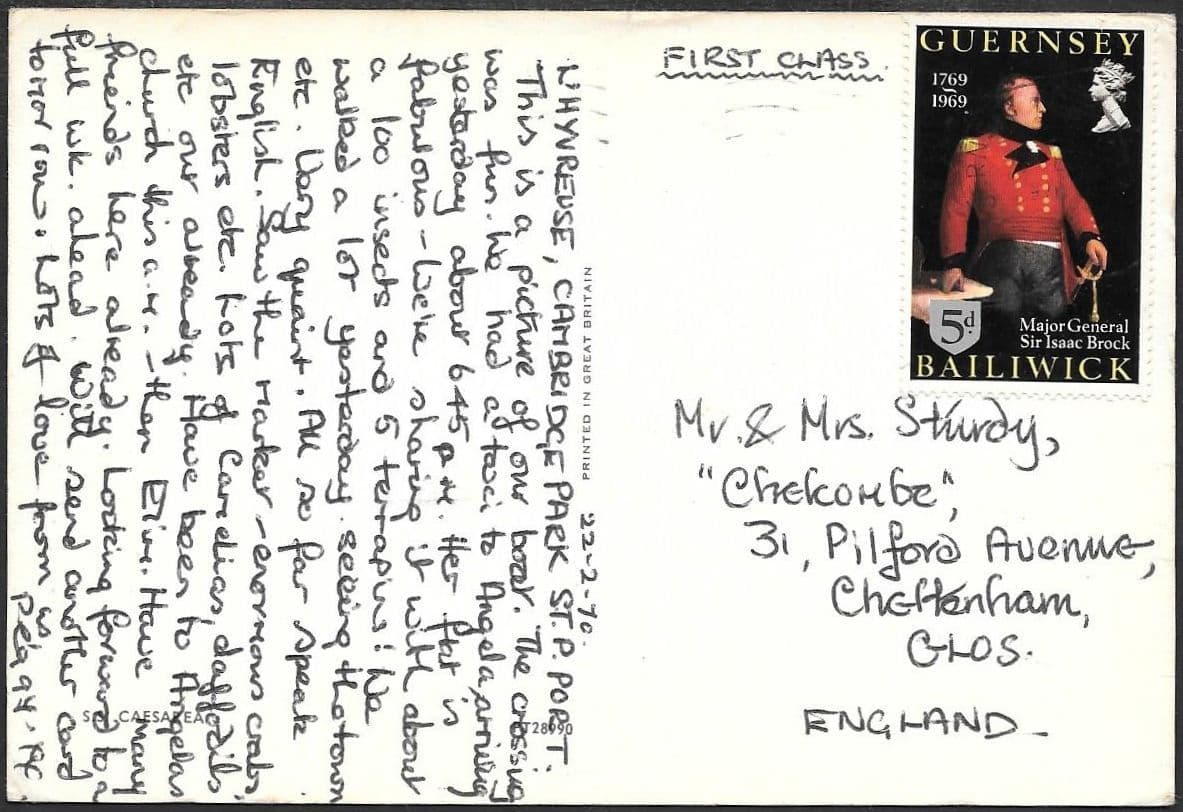 WHYVREUSE, CAMBRIDGE PARK ST. P. PORT.
22-2-70.
This is a picture of our boat. The crossing
was fun. We had a taxi to Angela, arriving
yesterday about 6.45 p.m. Her flat is
fabulous - We're sharing it with about
a 100 insects and 5 terrapins! We
walked a lot yesterday seeing the town
etc. Very quaint. All so far speak
English. Saw the market - enormous crabs,
lobsters etc. Lots of Camelias, daffodils
etc our already. Have been to Angelas
church this a.m. - then Elim. Have many
freinds here already. Looking forward to a
full wk. ahead. Will send another card
tomorrow. Lots of love from us
Peggy.
S.S. CAESAREA
PT28990
PRINTED IN GREAT BRITAIN
FIRST CLASS.
GUERNSEY
1769
1969
5d.
Major General
Sir Isaac Brock
BAILIWICK
Mr. & Mrs. Sturdy,
"Chelcombe",
31, Pilford Avenue,
Cheltenham,
GLOS.
ENGLAND